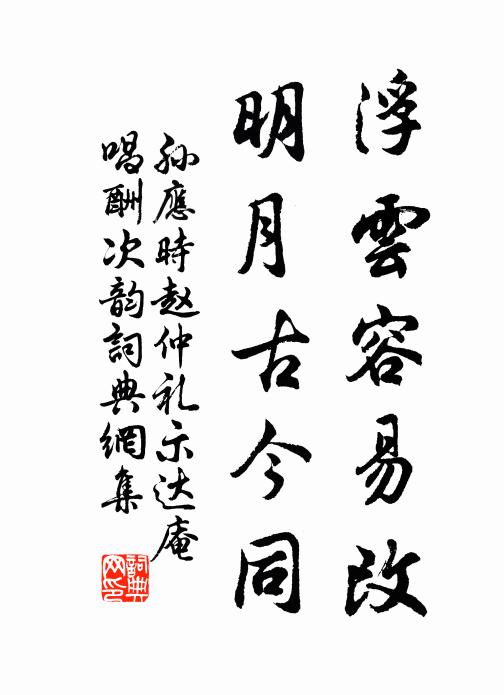 浮雲容易改
明月古今同
孫應時赵仲礼示达庵
唱酬次韵詞典網集
詞典网印